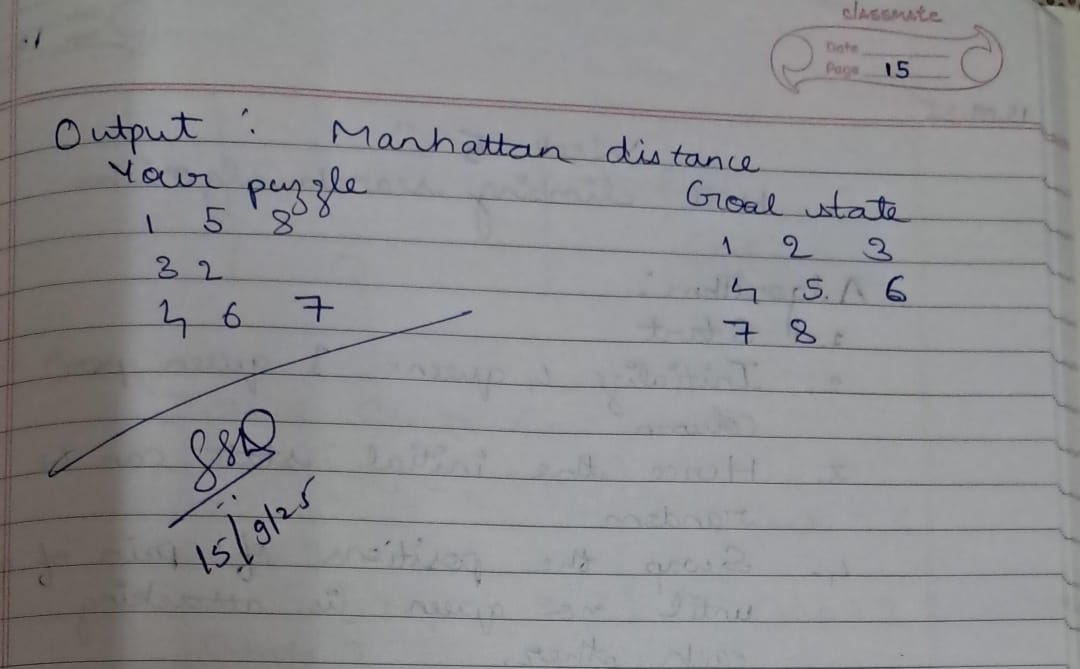 classmate
Date
Page 15
Output : Manhattan distance
Your puzzle Goal state
1 5 8 1 2 3
3 2 4 5. 6
4 6 7 7 8
15/9/25